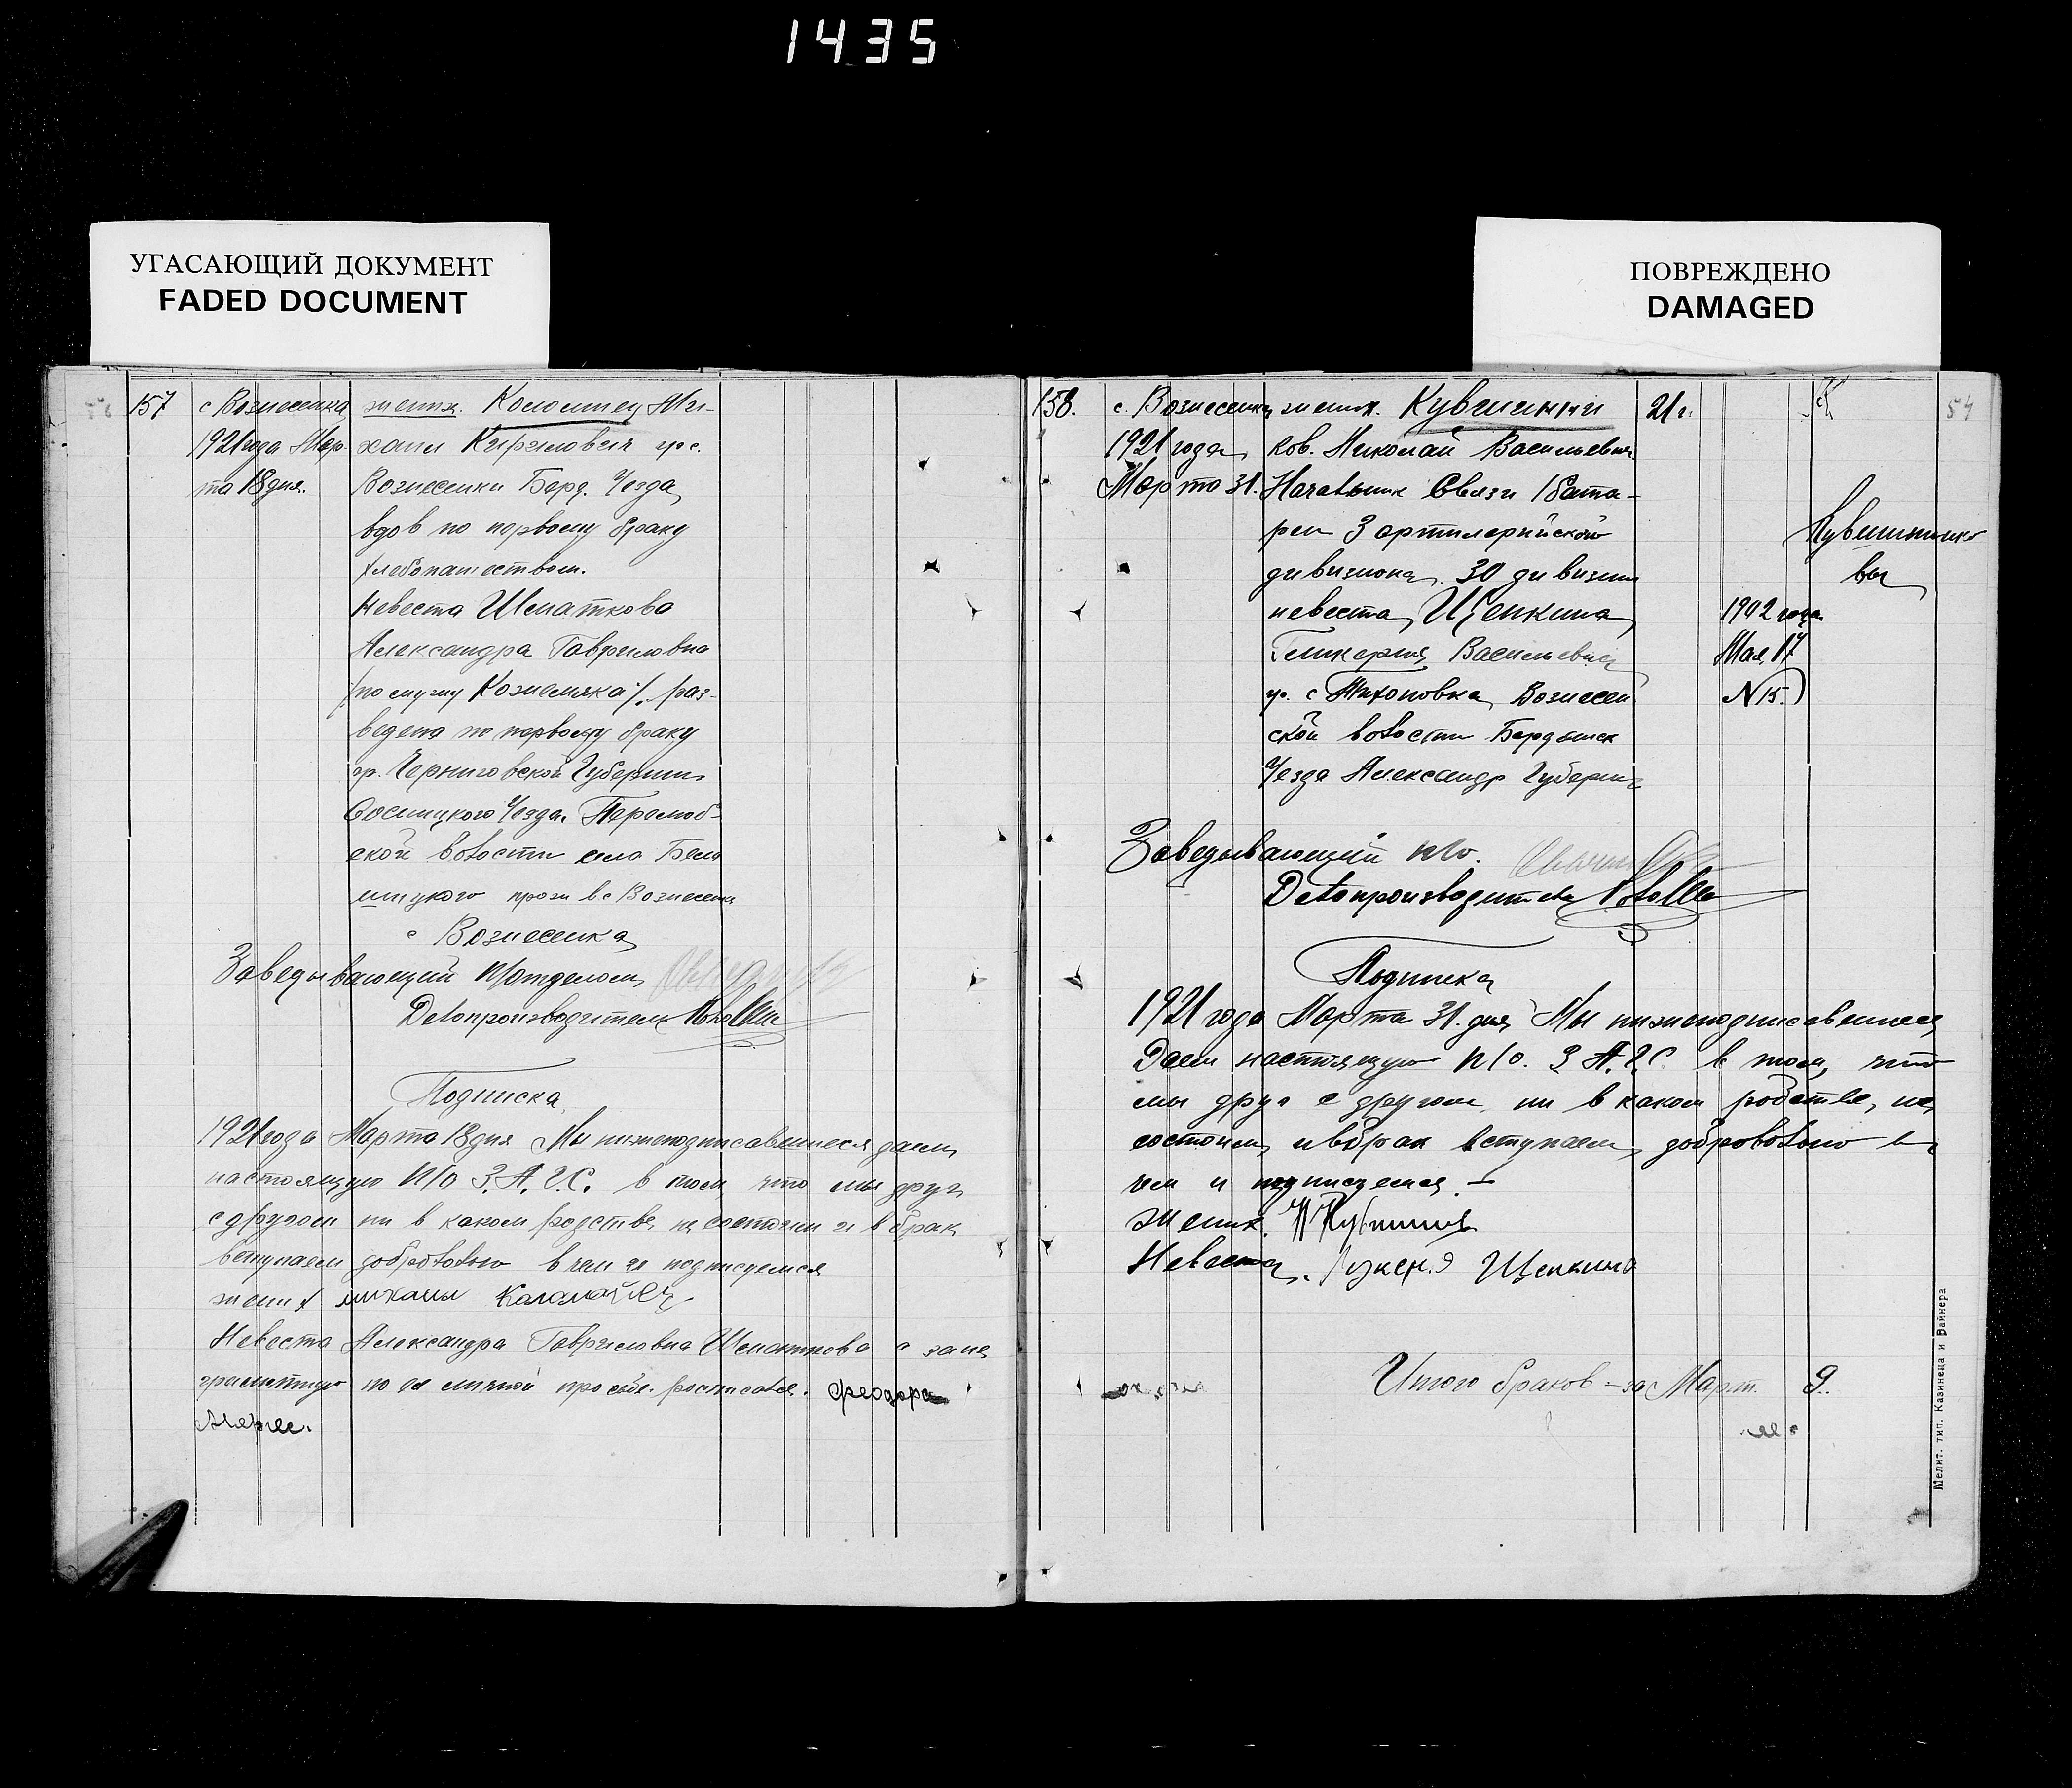 1435
УГАСАЮЩИЙ ДОКУМЕНТ
FADED DOCUMENT
ПОВРЕЖДЕНО
DAMAGED
157 с Вознесенка жених. Коломиец Ми-
1921 года Мар- хаил Кирилович гр с.
та 18 дня. Вознесенки Берд. Уезда
вдов по первому браку
хлебопашеством.
Невеста Шматкова
Александра Гавриловна
/по мужу Коземяка/. раз-
ведена по первому браку
гр. Черниговской Губернии
Сосницкого Уезда.
ской волости села
прож в с Вознесенка
с Вознесенка
Заведывающий п/отделом
Делопроизводитель
Подписка
1921 года Марта 18 дня Мы нижеподписавшиеся даем
настоящую п/о З.А.Г.С. в том что мы друг
с другом ни в каком родстве не состоим и в брак
вступаем добровольно в чем и подписуемся
жених михаил
Невеста Александра Гавриловна Шматкова а за не
грамотную по ея личной просьбе росписался. феодора
158. с. Вознесенка жених. Кувшинни 21 г.
1921 года ков. Николай Васильевич
Марта 31. Начальник Связи 1 бата-
реи 3 артилерийской
дивизиона 30 дивизии
Кувшиннико
вы
невеста, Щепкина 1902 года
Гликерия Васильевна Мая 17
гр. с Тихоновка Вознесен N 15.
ской волости Бердянск
Уезда Александр Губернии
Заведывающий п/о.
Делопроизводитель
Подписка
1921 года Марта 31. дня Мы нижеподписавшиеся
Даем настоящую п/о. З А.Г.С. в том, что
мы друг с другом ни в каком родстве, не
состоим, и в брак вступаем добровольно в
чем и подписуемся. –
жених.
Невеста. Щепкина
Итого браков – за Март. 9.
54
Мелит. тип. Казинеца и Вайнера